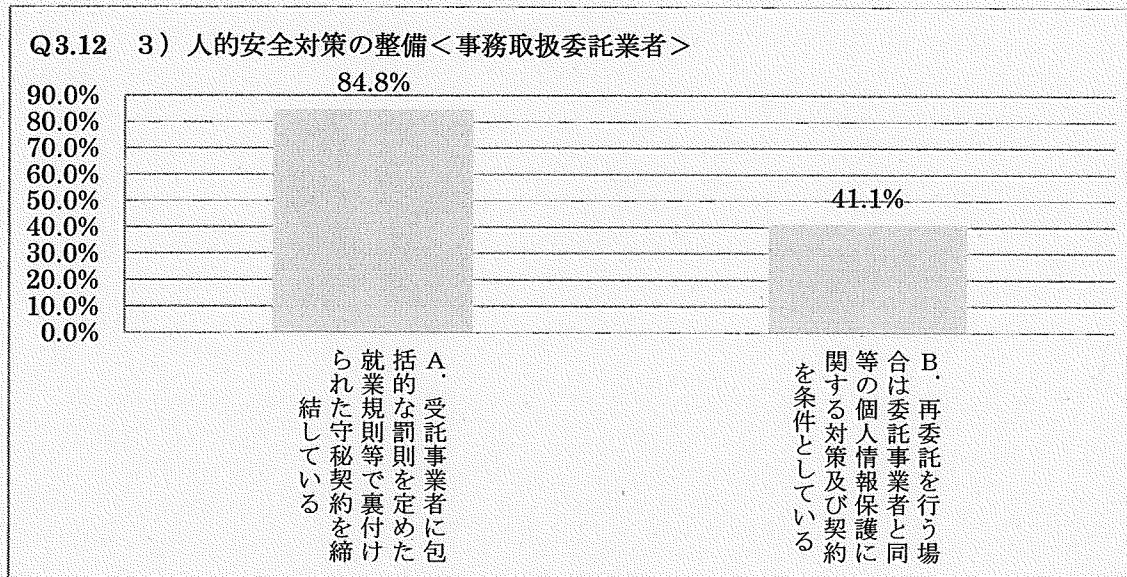 Q3.12 3）人的安全対策の整備＜事務取扱委託業者＞
84.8%
90.0%
80.0%
70.0%
60.0%
50.0%
41.1%
40.0%
30.0%
20.0%
10.0%
0.0%
A．受託事業者に包
括的な罰則を定めた
就業規則等で裏付け
られた守秘契約を締
結している
B．再委託を行う場
合は委託事業者と同
等の個人情報保護に
関する対策及び契約
を条件としている